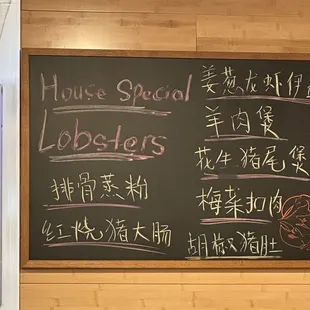 House Special
Lobsters
排骨蒸粉
红烧猪大肠
姜葱龙虾伊
羊肉煲
花生猪尾煲
梅菜扣肉
胡椒猪肚